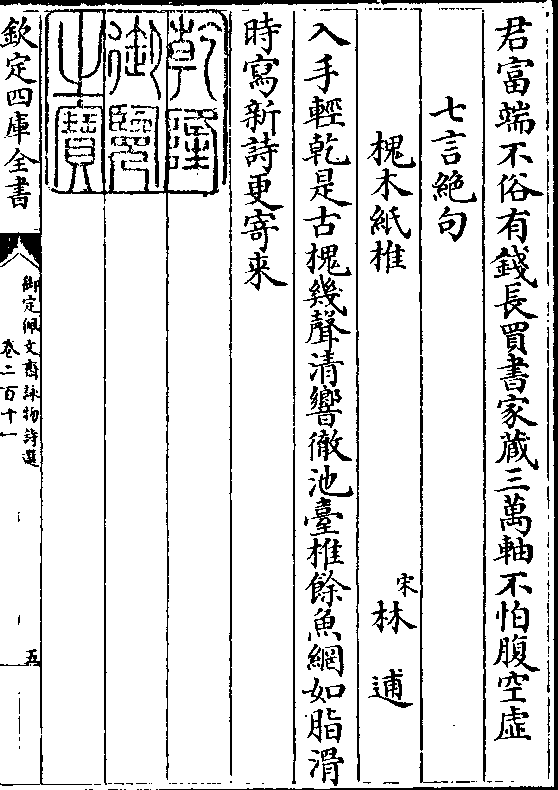 君富端不俗有錢長買書家藏三萬軸不怕腹空虛
七言絕句
槐木紙椎
宋林逋
入手輕乾是古槐幾聲清響徹池臺椎餘魚網如脂滑
時寫新詩更寄来
乾隆御覽之寶
欽定四庫全書
御定佩文齋詠物詩選
卷二百十一
五